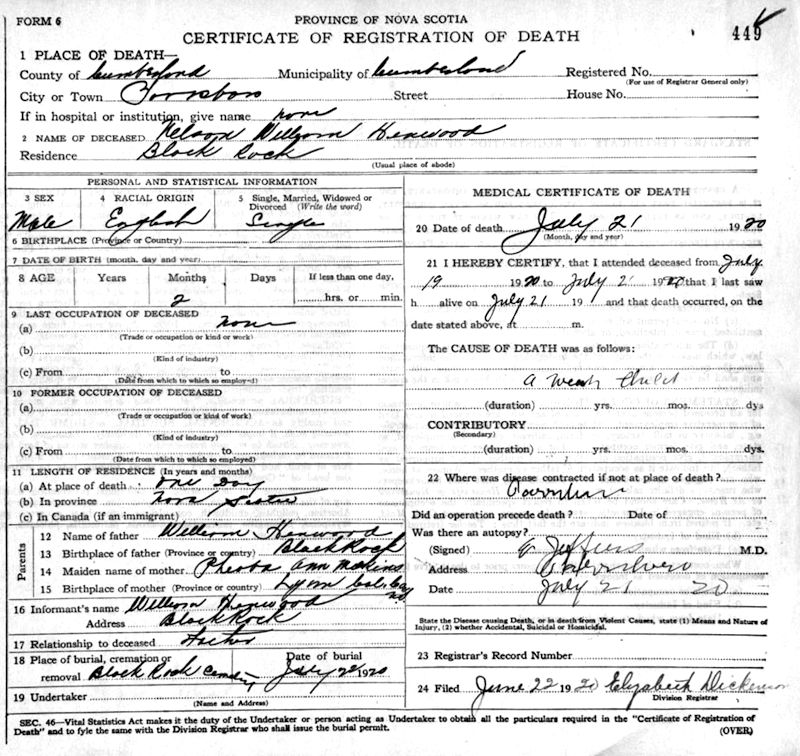 FORM 6
PROVINCE OF NOVA SCOTIA
CERTIFICATE OF REGISTRATION OF DEATH
449
1 PLACE OF DEATH—
County of Cumberland Municipality of Cumberland Registered No.
(For use of Registrar General only)
City or Town Parrsboro Street House No.
If in hospital or institution, give name none
2 NAME OF DECEASED Nelson William Henwood
Residence Black Rock
(Usual place of abode)
PERSONAL AND STATISTICAL INFORMATION
3 SEX 4 RACIAL ORIGIN 5 Single, Married, Widowed or Divorced (Write the word)
Male English Single
6 BIRTHPLACE (Province or Country)
7 DATE OF BIRTH (month, day and year)
8 AGE Years Months Days If less than one day,
2 hrs. or min.
9 LAST OCCUPATION OF DECEASED
(a) none
(Trade or occupation or kind or work)
(b)
(Kind of industry)
(c) From to
(Date from which to which so employed)
10 FORMER OCCUPATION OF DECEASED
(a)
(Trade or occupation or kind of work)
(b)
(Kind of industry)
(c) From to
(Date from which to which so employed)
11 LENGTH OF RESIDENCE (In years and months)
(a) At place of death one Day
(b) In province Nova Scotia
(c) In Canada (if an immigrant)
Parents
12 Name of father William Henwood
13 Birthplace of father (Province or country) Black Rock
14 Maiden name of mother Ann
15 Birthplace of mother (Province or country)
16 Informant's name William Henwood
Address Black Rock
17 Relationship to deceased Father
18 Place of burial, cremation or removal Black Rock Date of burial July 22 1920
19 Undertaker
(Name and Address)
MEDICAL CERTIFICATE OF DEATH
20 Date of death July 21 1920
(Month, day and year)
21 I HEREBY CERTIFY, that I attended deceased from July
19 1920 to July 21 1920 that I last saw
h alive on July 21 19 and that death occurred, on the
date stated above, at m.
The CAUSE OF DEATH was as follows:
a weak child
(duration) yrs. mos. dys
CONTRIBUTORY
(Secondary)
(duration) yrs. mos. dys.
22 Where was disease contracted if not at place of death?
Parrsboro
Did an operation precede death? Date of
Was there an autopsy?
(Signed) Jeffers M.D.
Address Parrsboro
Date July 21 20
State the Disease causing Death, or in death from Violent Causes, state (1) Means and Nature of
Injury, (2) whether Accidental, Suicidal or Homicidal.
23 Registrar's Record Number
24 Filed June 22 1920 Elizabeth Dickenson
Division Registrar
SEC. 46—Vital Statistics Act makes it the duty of the Undertaker or person acting as Undertaker to obtain all the particulars required in the "Certificate of Registration of
Death" and to fyle the same with the Division Registrar who shall issue the burial permit. (OVER)